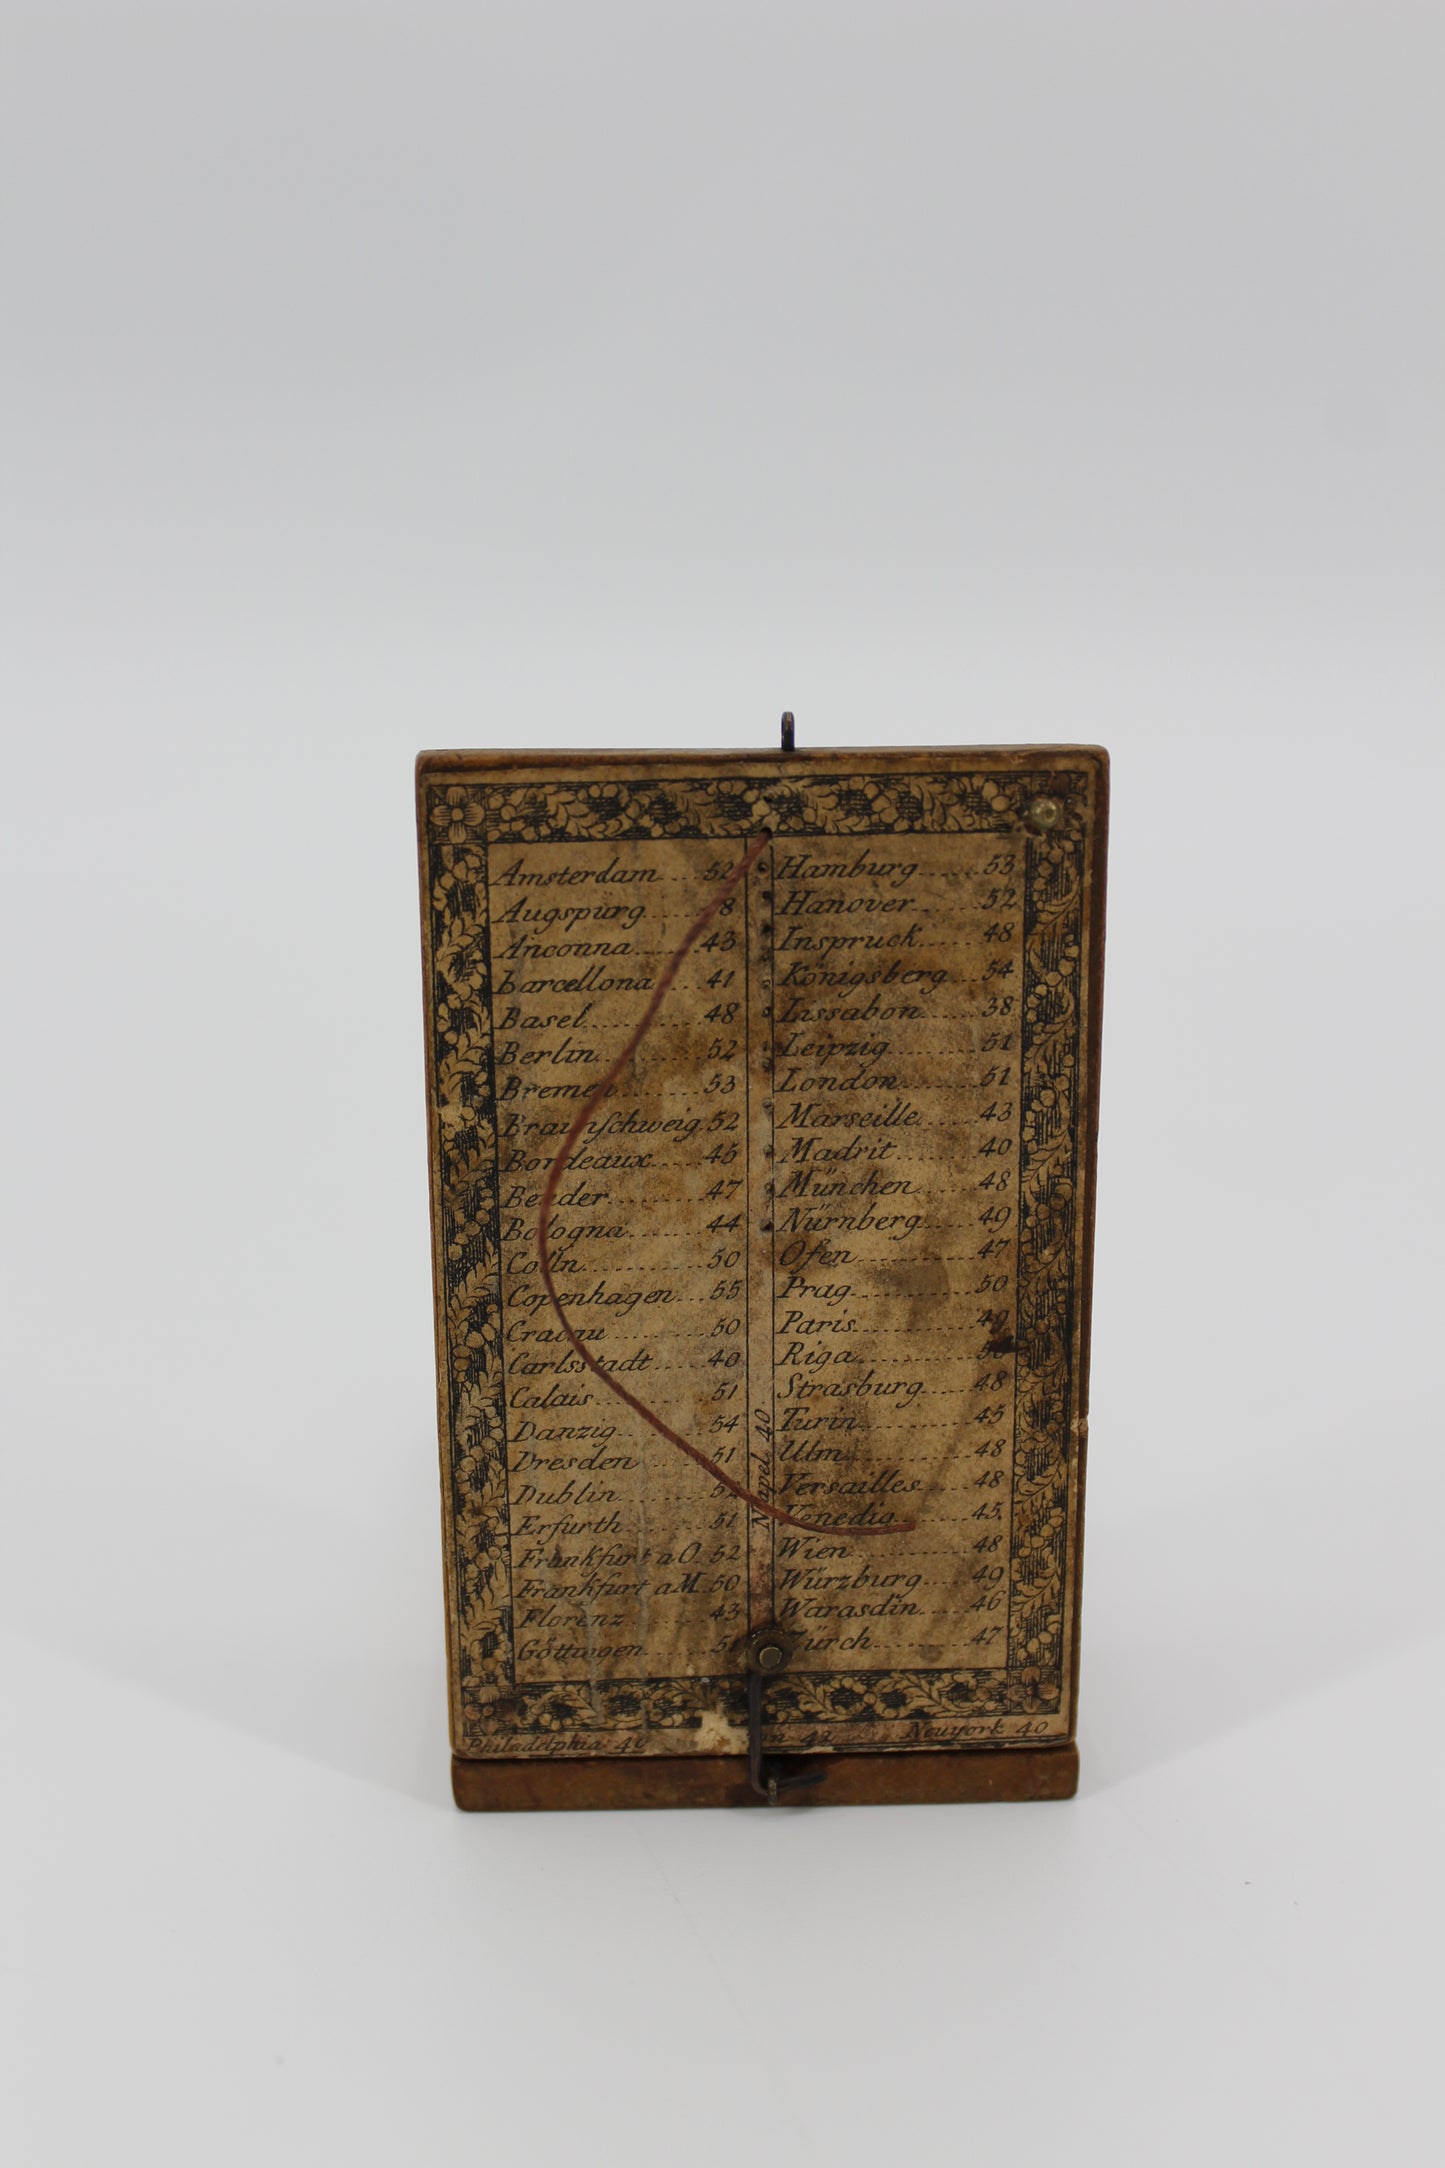 Amsterdam 52
Augspürg 8
Anconna 43
Barcellona 41
Basel 48
Berlin 52
Bremen 53
Braunschweig 52
Bordeaux 45
Bender 47
Bologna 44
Colln 50
Copenhagen 55
Cracau 50
Carlsstadt 40
Calais 51
Danzig 54
Dresden 51
Dublin
Erfurth 51
Frankfurt a O. 52
Frankfurt a M. 50
Florenz 43
Göttingen 51
Napel 40
Hamburg 53
Hanover 52
Inspruck 48
Königsberg 54
Lissabon 38
Leipzig 51
London 51
Marseille 43
Madrit 40
München 48
Nürnberg 49
Ofen 47
Prag 50
Paris 49
Riga
Strasburg 48
Turin 45
Ulm 48
Versailles 48
Venedig 45
Wien 48
Würzburg 49
Warasdin 46
Zürch 47
Philadelphia 40
42
Neuyork 40